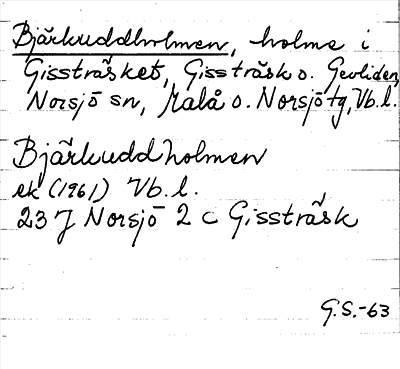 Bjärkuddholmen, holme i
Gissträsket, Gissträsk o. Gevliden,
Norsjö sn, Malå o. Norsjö tg, Vb. l.
Bjärkuddholmen
ek (1961) Vb. l.
23 J Norsjö 2 c Gissträsk
G.S.-63